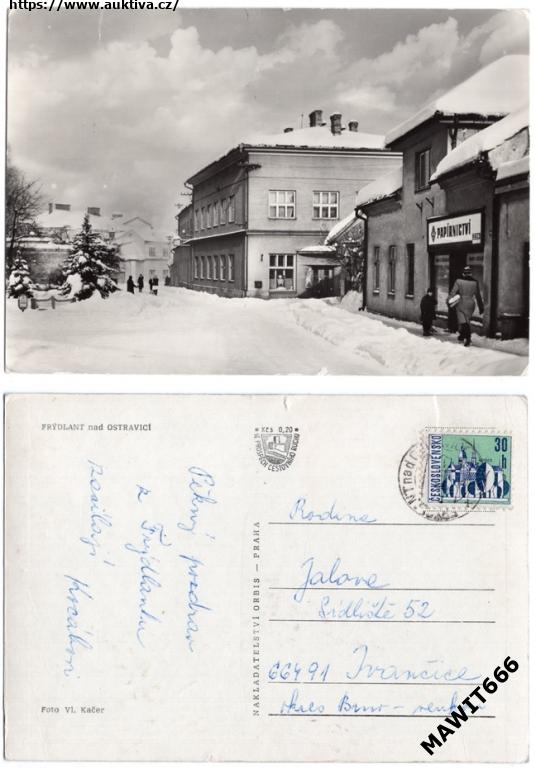 https://www.auktiva.cz/
PAPÍRNICTVÍ
FRÝDLANT nad OSTRAVICÍ
Kčs 0,20
VE PROSPĚCH CESTOVNÍHO RUCHU
ČESKOSLOVENSKO
30 h
Pěkný pozdrav
z Frýdlantu
zasílají Korčákovi
NAKLADATELSTVÍ ORBIS – PRAHA
Rodina
Jalova
Sídliště 52
66491 Ivančice
okres Brno – venkov
Foto Vl. Kačer
MAWIT666